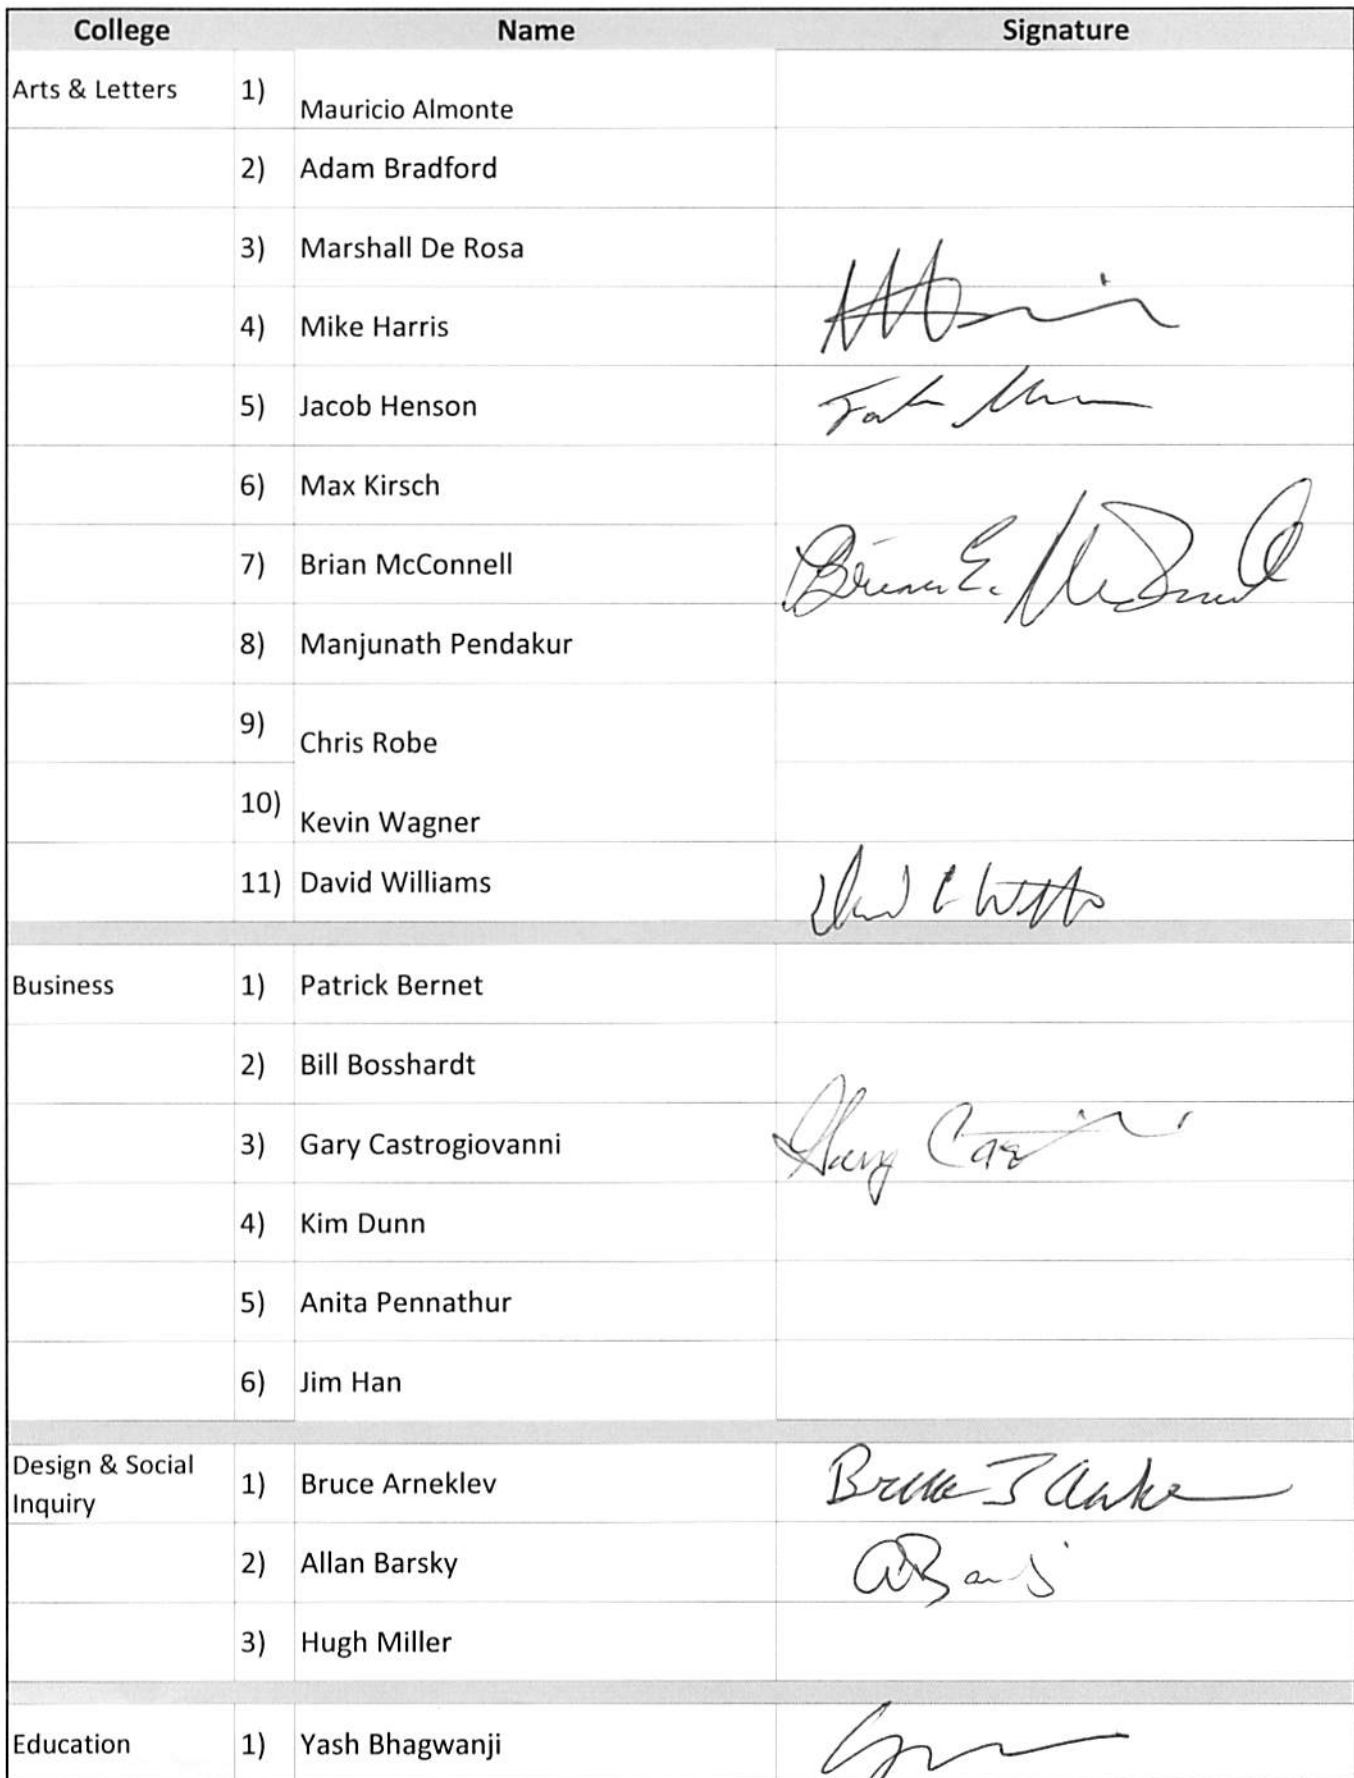 College Name Signature
Arts & Letters 1) Mauricio Almonte
2) Adam Bradford
3) Marshall De Rosa
4) Mike Harris
5) Jacob Henson
6) Max Kirsch
7) Brian McConnell Brian E. McConnell
8) Manjunath Pendakur
9) Chris Robe
10) Kevin Wagner
11) David Williams
Business 1) Patrick Bernet
2) Bill Bosshardt
3) Gary Castrogiovanni Gary
4) Kim Dunn
5) Anita Pennathur
6) Jim Han
Design & Social
Inquiry 1) Bruce Arneklev Bruce J
2) Allan Barsky
3) Hugh Miller
Education 1) Yash Bhagwanji